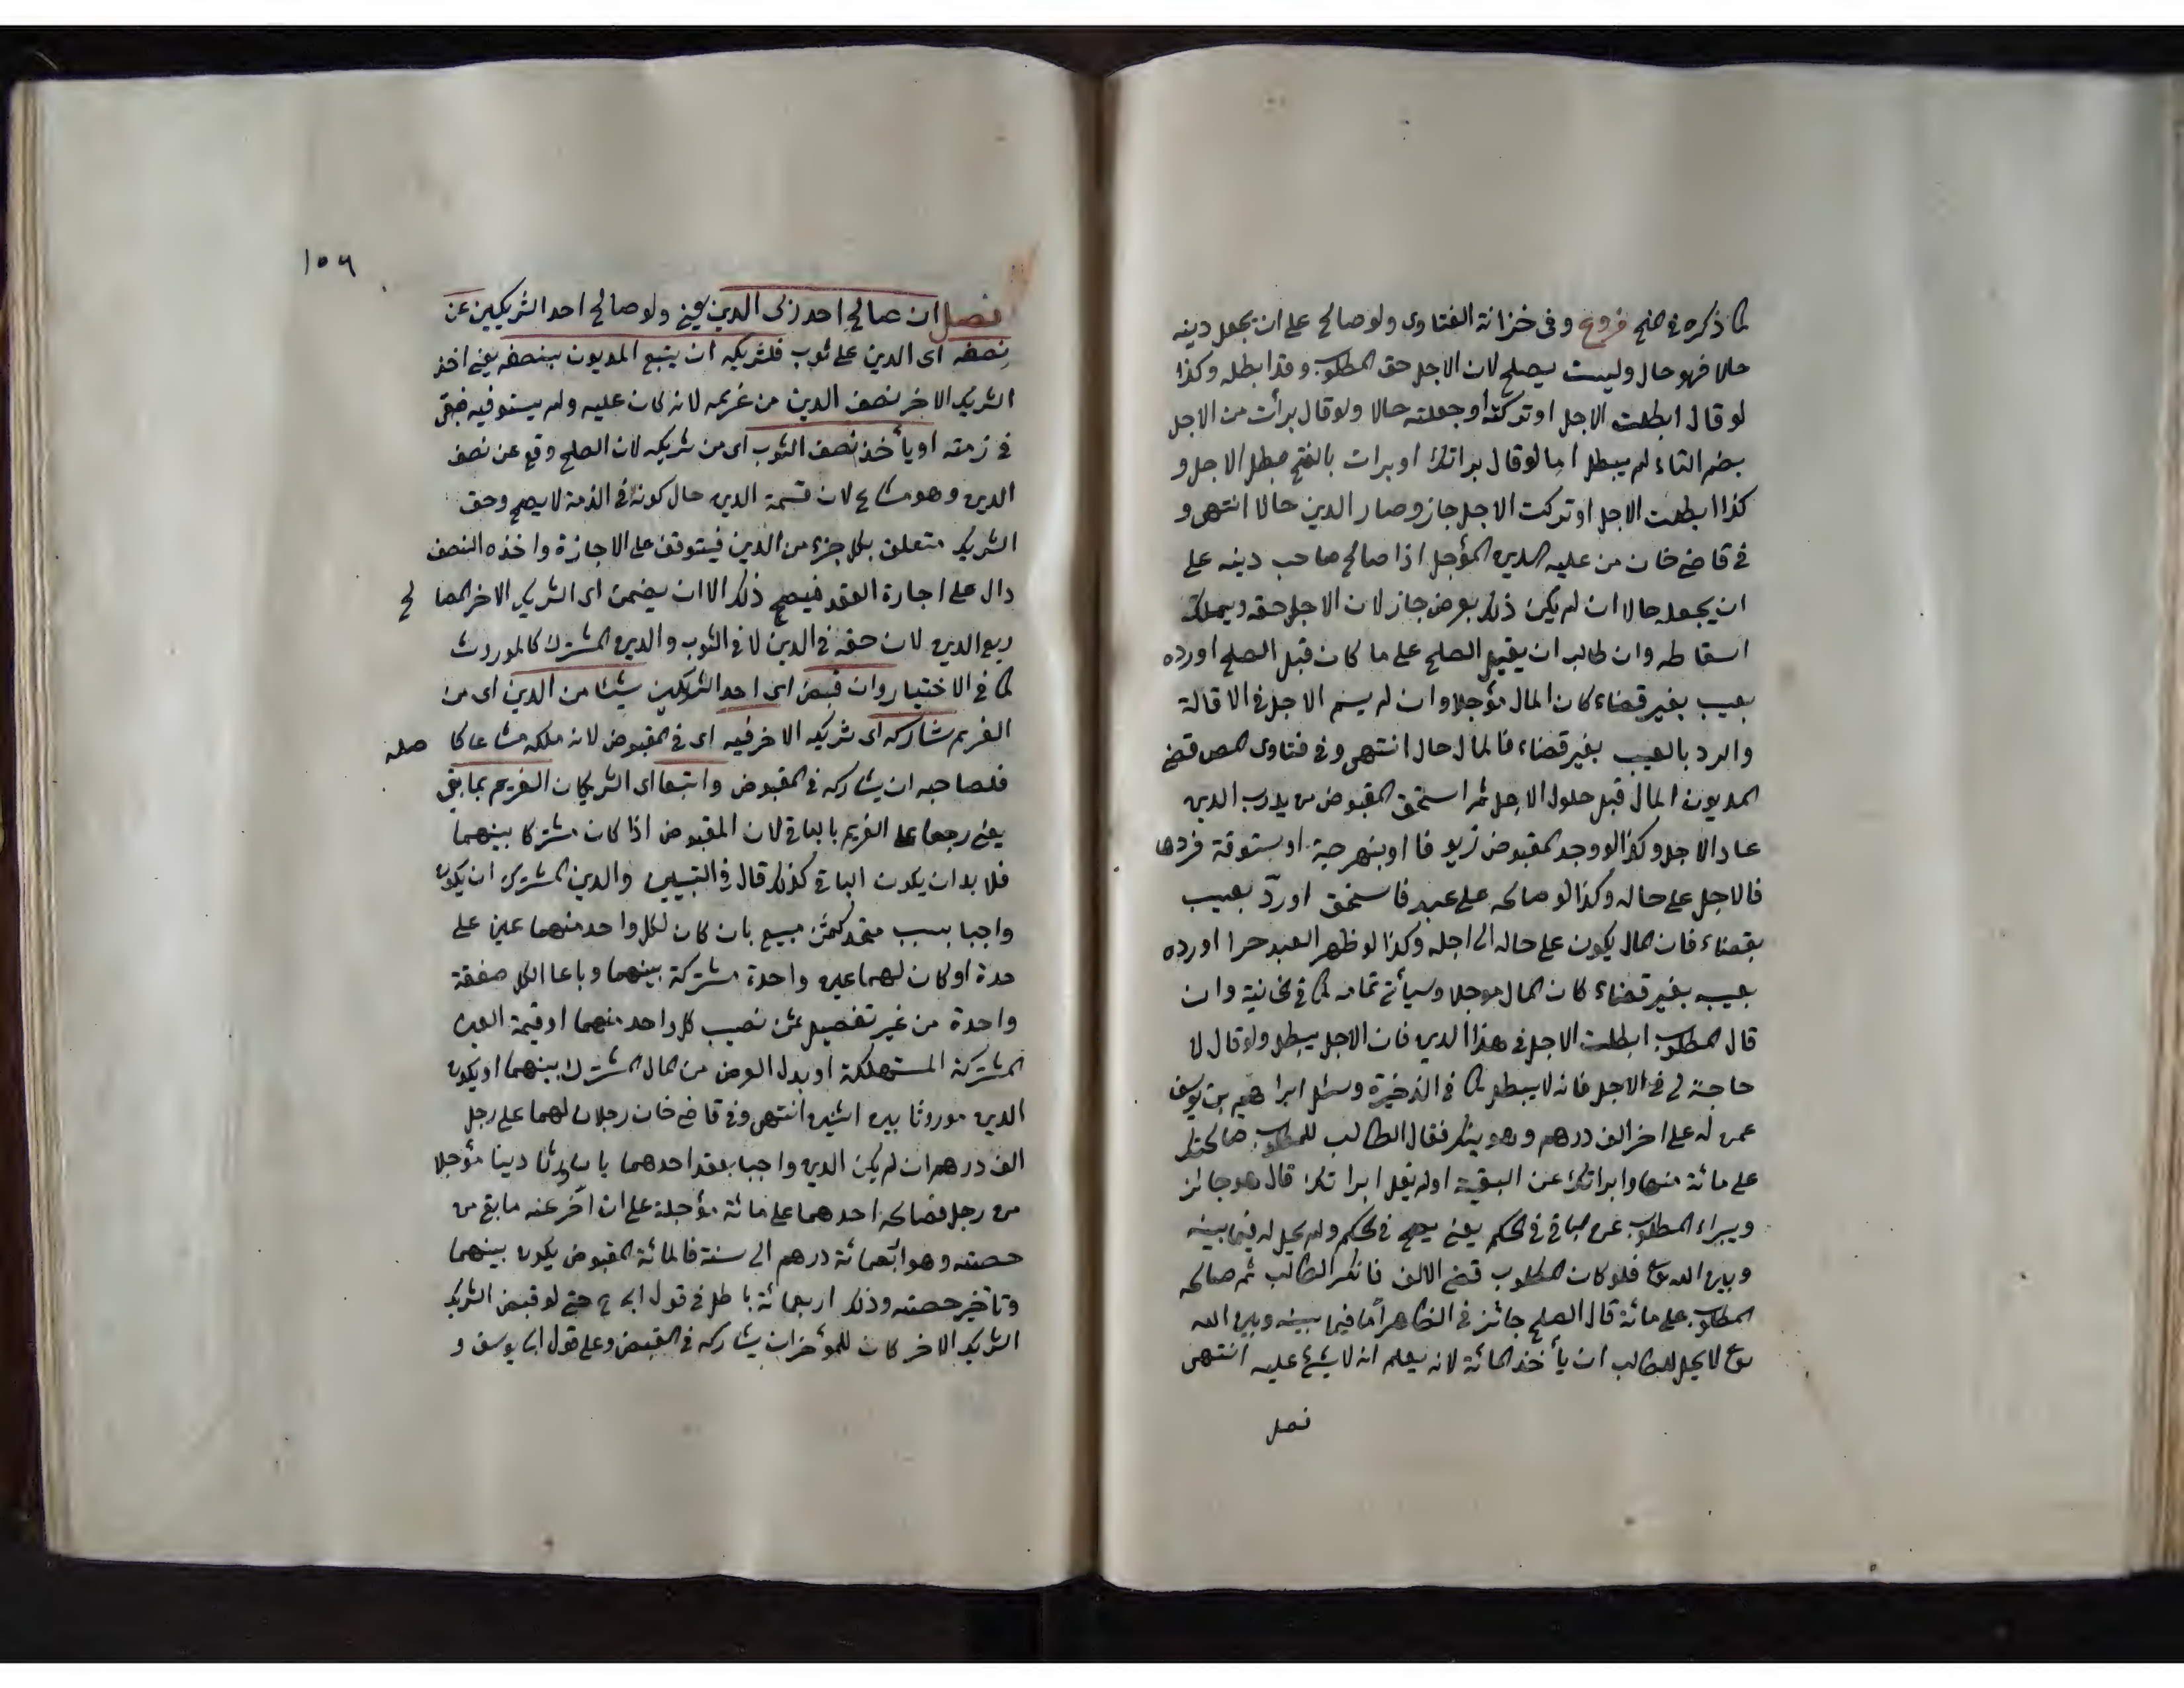 كما ذكره في المنح فروع وفى خزانة الفتاوى ولو صالح على ان يجعل دينه
حالا فهو حال وليست يصلح لان الاجل حق المطلوب وقد ابطله وكذا
لو قال ابطلت الاجل او تركته او جعلته حالا ولو قال برأت من الاجل
بضم التاء لم يبطل اما لو قال براتك او برات بالفتح مبطل الاجل و
كذا ابطلت الاجل او تركت الاجل جاز وصار الدين حالا انتهى و
في قاضي خان من عليه الدين المؤجل اذا صالح صاحب دينه على
ان يجعله حالا ان لم يكن ذلك بعوض جاز لان الاجل حقه ويملك
اسقاطه وان طالب ان يقبل الصلح على ما كان قبل الصلح او رده
بعيب بغير قضاء كان المال مؤجلا وان لم يسم الاجل في الاقالة
والرد بالعيب بغير قضاء فالمال حال انتهى وفي فتاوى قضى
المديون المال قبل حلول الاجل ثم استحق المقبوض من يد رب الدين
عاد الاجل وكذا لو وجد المقبوض زيوفا او بنهرجة او ستوقة فردها
فالاجل على حاله وكذا لو صالحه على عبد فاستحق او ردّ بعيب
بقضاء فان المال يكون على حاله الى اجله وكذا لو ظهر العبد حرا او رده
بعيب بغير قضاء كان المال موجلا وسيأتي تمامه كما في الخانية وان
قال المطلوب ابطلت الاجل في هذا الدين فان الاجل يبطل ولو قال لا
حاجة لي في الاجل فانه لا يبطل كما في الذخيرة وسئل ابراهيم بن يوسف
عمن له على اخر الف درهم وهو ينكر فقال الطالب للمطلوب صالحتك
على مائة منها وابراتك عن البقية او لم يقل ابراتك قال هو جائز
ويبراء المطلوب عن الباقي في الحكم يعنى يصح في الحكم ولم يحل له فيما بينه
وبين الله تع فلو كان المطلوب قضى الالف فانكر الطالب ثم صالحه
المطلوب على مائة قال الصلح جائز في الظاهر اما فيما بينه وبين الله
تع لا يحل للطالب ان يأخذ المائة لانه يعلم ان لا شئ عليه انتهى
فصل
١٥٦
فصل ان صالح احد ربى الدين يعني ولو صالح احد الشريكين عن
نصفه اى الدين على ثوب فلشريكه ان يتبع المديون بنصفه يعني اخذ
الشريك الاخر نصف الدين من غريمه لانه كان عليه ولم يستوفيه فبقى
في ذمته او يأخذ نصف الثوب اى من شريكه لان الصلح وقع عن نصف
الدين وهو مشاع لان قسمة الدين حال كونه في الذمة لا يصح وحق
الشريك متعلق بكل جزء من الدين فيتوقف على الاجازة واخذه النصف
دال على اجازة العقد فيصح ذلك الا ان يضمن اى الشريك الاخر المصالح
ربع الدين لان حقه في الدين لا في الثوب والدين المشترك كالموروث
كما في الاختيار وان قبض اى احد الشريكين شيئا من الدين اى من
الغريم شاركه اى شريكه الاخر فيه اى في المقبوض لانه ملكه مشاعا كاصله
فلصاحبه ان يشاركه في المقبوض واتبعا اى الشريكان الغريم بما بقى
يعنى رجعا على الغريم بالباقي لان المقبوض اذا كان مشتركا بينهما
فلا بد ان يكون الباقي كذلك قال في التبيين والدين المشترك ان يكون
واجبا بسبب متحد كثمن مبيع بان كان لكل واحد منهما عين على
حدة او كان لهما عين واحدة مشتركة بينهما وباعا الكل صفقة
واحدة من غير تفصيل ثمن نصيب كل واحد منهما او قيمة العين
المشتركة المستهلكة او بدل العوض من المال المشترك بينهما او يكون
الدين موروثا بين اثنين انتهى وفي قاضي خان رجلان لهما على رجل
الف درهم ان لم يكن الدين واجبا بعقد احدهما دينا مؤجلا
من رجل فصالحه احدهما على مائة مؤجلة على ان اخر عنه ما بقى من
حصته وهو اربعمائة درهم الى سنة فالمائة المقبوض يكون بينهما
وتأخير حصته وذلك اربعمائة باطل في قول ابى ح حتى لو قبض الشريك
الشريك الاخر كان للمؤخر ان يشاركه في القبض وعلى قول ابى يوسف و